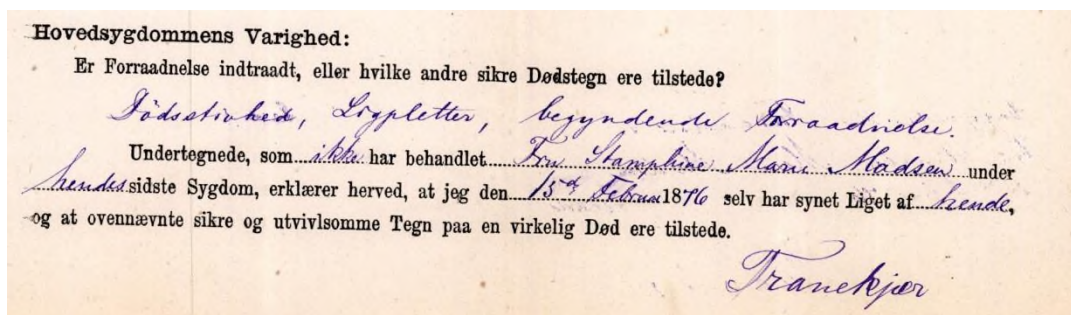 Hovedsygdommens Varighed:
Er Forraadnelse indtraadt, eller hvilke andre sikre Dødstegn ere tilstede?
Dödsstivhed, Ligpletter, begyndende Forraadnelse.
Undertegnede, som ikke har behandlet Fru Marie Madsen under
hendes sidste Sygdom, erklærer herved, at jeg den 15d Februar 1876 selv har synet Liget af hende,
og at ovennævnte sikre og utvivlsomme Tegn paa en virkelig Død ere tilstede.
Tranekjær